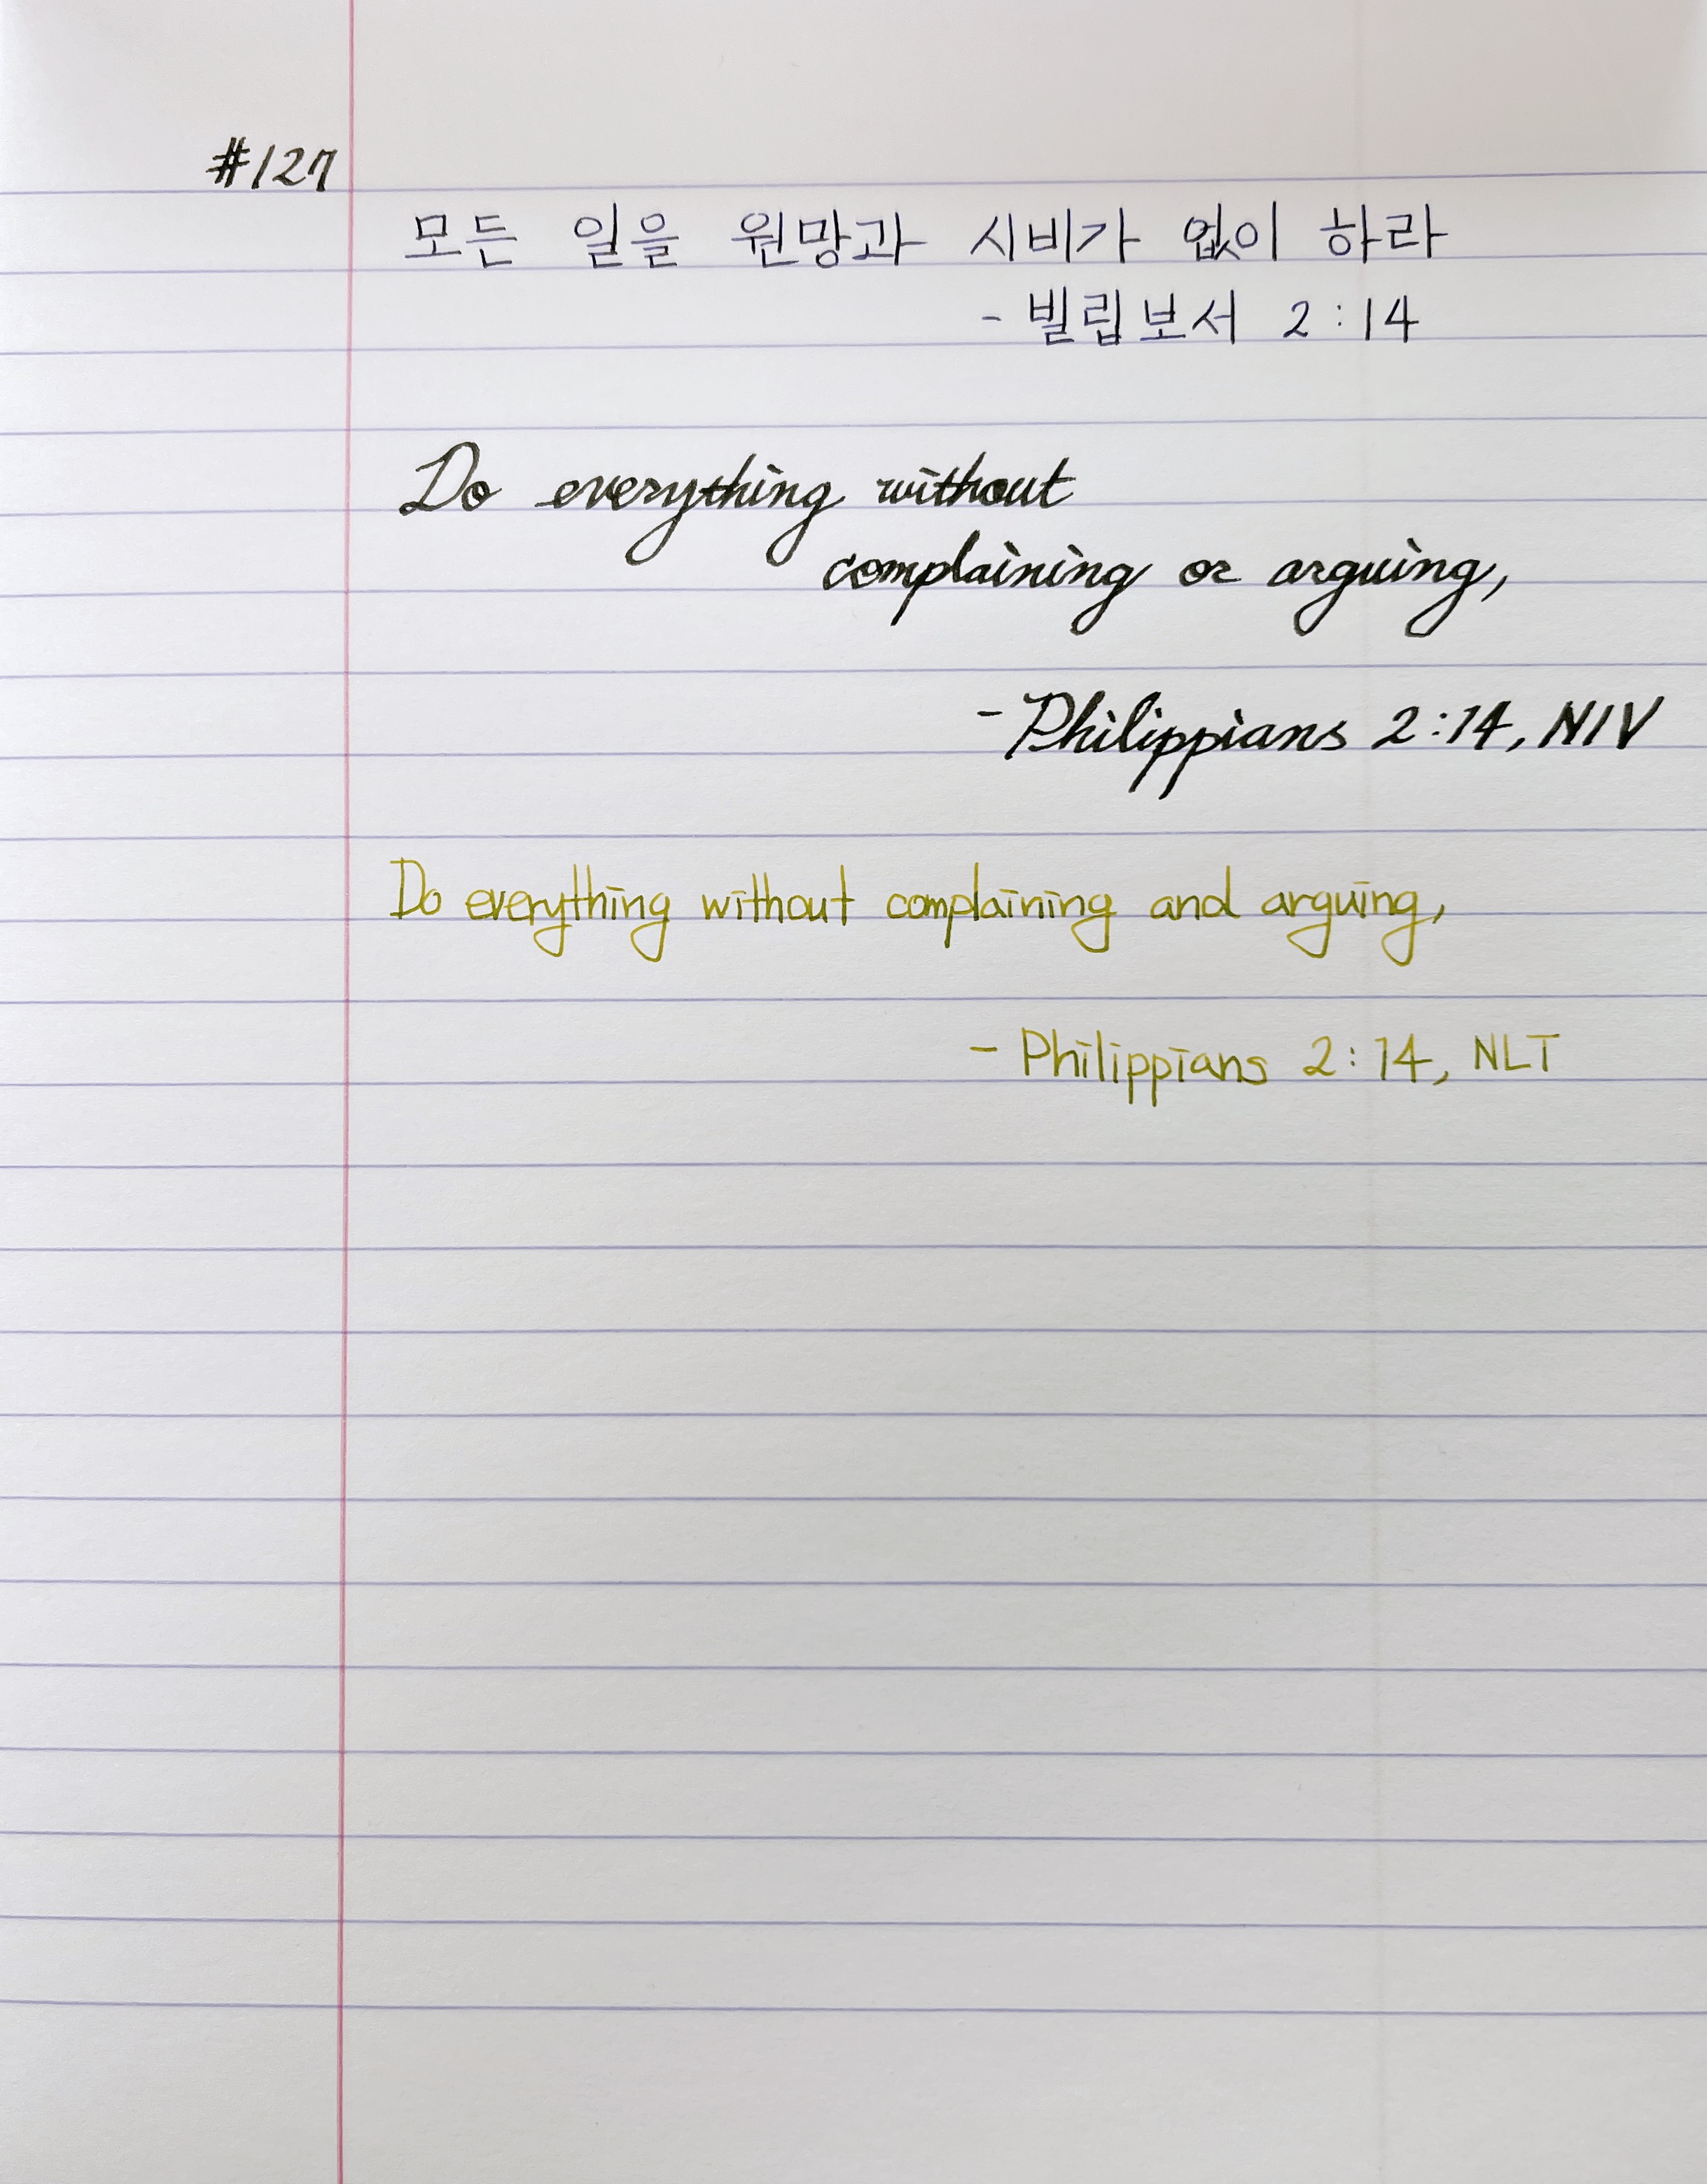 #127
모든 일을 원망과 시비가 없이 하라
- 빌립보서 2:14
Do everything without
complaining or arguing,
- Philippians 2:14, NIV
Do everything without complaining and arguing,
- Philippians 2:14, NLT